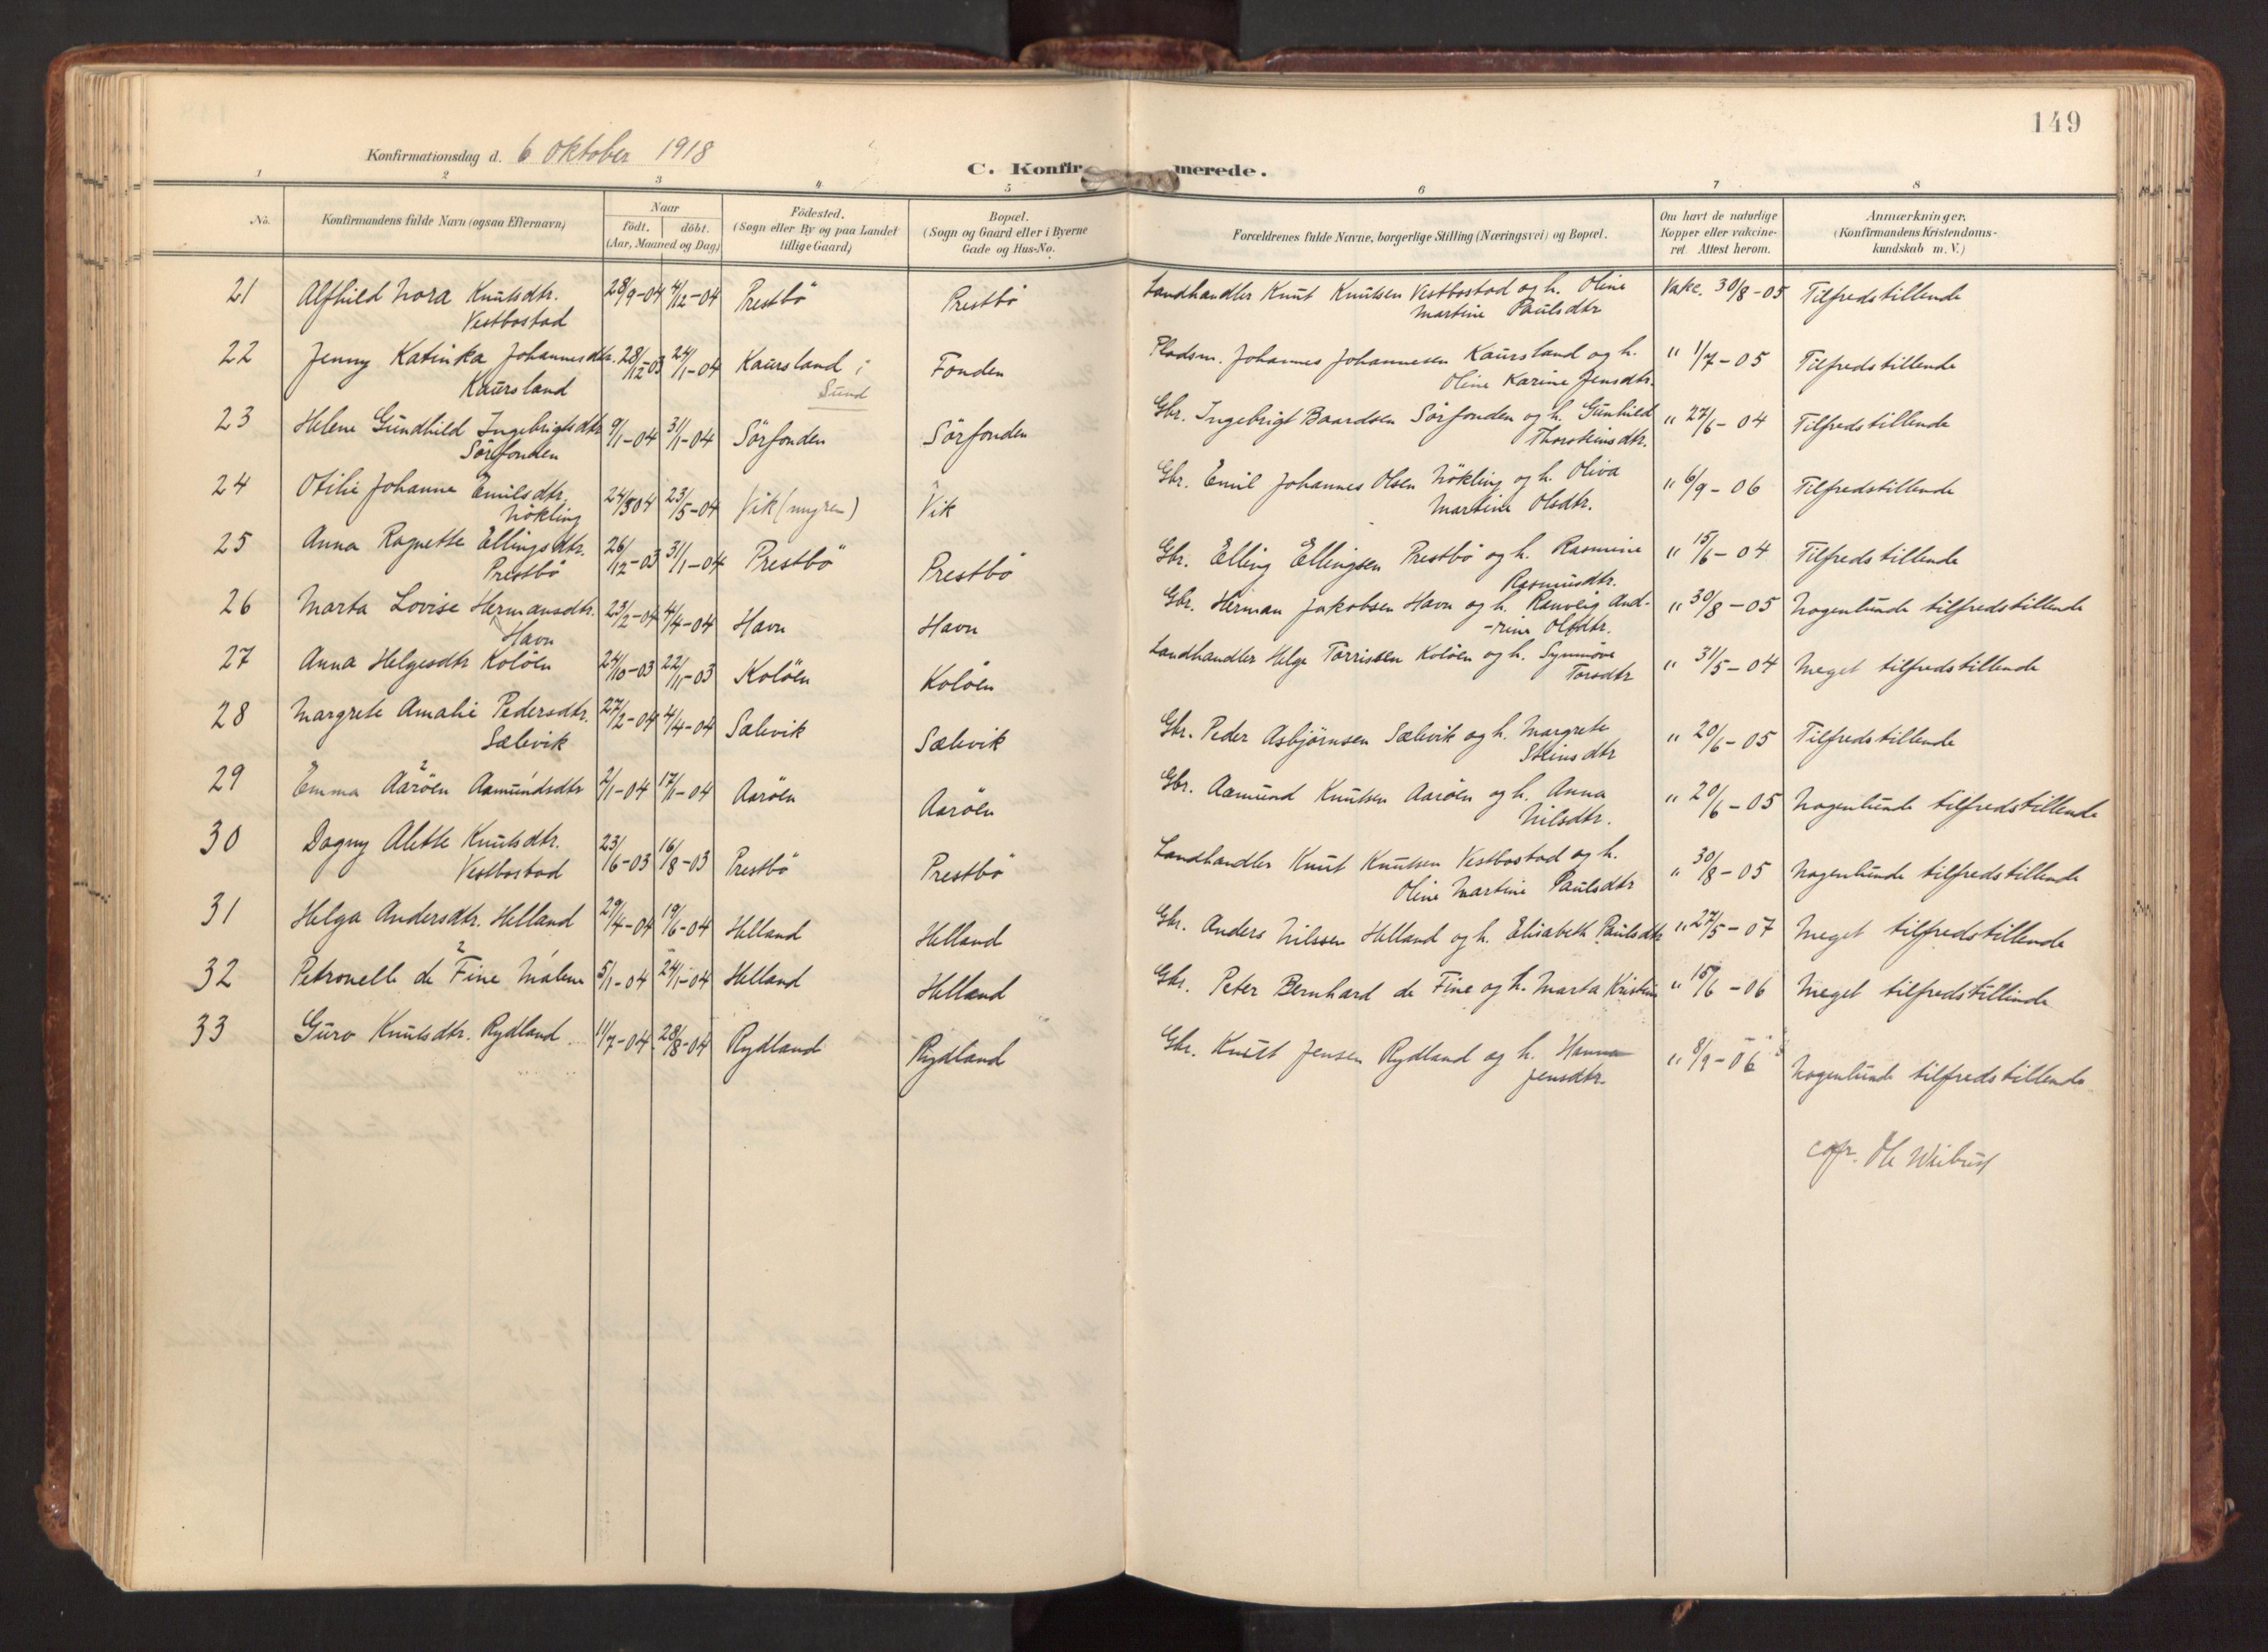 149
Konfirmationsdag d. 6 Oktober 1918
C. Konfirmerede.
1 2 3 4 5 6 7 8
No. Konfirmandens fulde Navn (ogsaa Efternavn) Naar født. døbt. (Aar, Maaned og Dag) Fødested. (Sogn eller By og paa Landet tillige Gaard) Bopæl. (Sogn og Gaard eller i Byerne Gade og Hus-No. Forældrenes fulde Navne, borgerlige Stilling (Næringsvei) og Bopæl. Om havt de naturlige Kopper eller vakcineret. Attest herom. Anmærkninger. (Konfirmandens Kristendomskundskab m. V.)
21 Alfhild Nora Knutsdtr. 28/9-04 4/12-04 Prestbö Prestbö Landhandler Knut Knutsen Vestbostad og h. Oline Vakc. 30/8-05 Tilfredstillende
Vestbostad Martine Paulsdtr
22 Jenny Katinka Johannesdtr. 28/12-03 24/1-04 Kaursland i Fonden Pladsm. Johannes Johannesen Kaursland og h. " 1/7-05 Tilfredstillende
Kaursland Sund Oline Karine Jensdtr.
23 Helene Gundhild Ingebrigtsdtr 9/1-04 31/1-04 Sörfonden Sörfonden Gbr. Ingebrigt Baardsen Sörfonden og h. Gunhild " 27/6-04 Tilfredstillende
Sörfonden Thorsteinsdtr.
24 Otilie Johanne Emilsdtr. 24/3 04 23/5-04 Vik (myren) Vik Gbr. Emil Johannes Olsen Nökling og h. Oliva " 6/9-06 Tilfredstillende
Nökling Martine Olsdtr.
25 Anna Ragnette Ellingsdtr. 26/12-03 31/1-04 Prestbö Prestbö Gbr. Elling Ellingsen Prestbö og h. Rasmine " 15/6-04 Tilfredstillende
Prestbö Rasmusdtr.
26 Marta Lovise Hermansdtr. 23/2-04 4/4-04 Havn Havn Gbr. Herman Jakobsen Havn og h. Ranveig And- " 30/8-05 Nogenlunde tilfredstillende
Havn -rine Olsdtr.
27 Anna Helgesdtr Kolöen 24/10-03 22/11-03 Kolöen Kolöen Landhandler Helge Torrissen Kolöen og h. Synnöve " 31/5-04 Meget tilfredstillende
Torsdtr
28 Margrete Amalie Pedersdtr. 27/2-04 4/4-04 Sælevik Sælevik Gbr. Peder Asbjørnsen Sælevik og h. Margrete " 20/6-05 Tilfredstillende
Sælevik Steinsdtr
29 Emma 2 Aaröen Aamundsdtr 1 2/1-04 17/1-04 Aaröen Aaröen Gbr. Aamund Knutsen Aaröen og h. Anna " 20/6-05 Nogenlunde tilfredstillende
Nilsdtr.
30 Dagny Alette Knutsdtr. 23/6-03 16/8-03 Prestbö Prestbö Landhandler Knut Knutsen Vestbostad og h. " 30/8-05 Nogenlunde tilfredstillende
Vestbostad Oline Martine Paulsdtr
31 Helga Andersdtr. Helland 29/4-04 19/6-04 Helland Helland Gbr. Anders Nilssen Helland og h. Elisabeth Paulsdtr " 27/5-07 Meget tilfredstillende
32 Petronelle 2 de Fine 1 Malene 5/1-04 24/1-04 Helland Helland Gbr. Peter Bernhard de Fine og h. Marta Kristine " 15/6-06 Meget tilfredstillende
33 Guro Knutsdtr. Rydland. 11/7-04 28/8-04 Rydland Rydland Gbr. Knut Jensen Rydland og h. Hanna " 8/9-06 Nogenlunde tilfredstillende
Jensdtr.